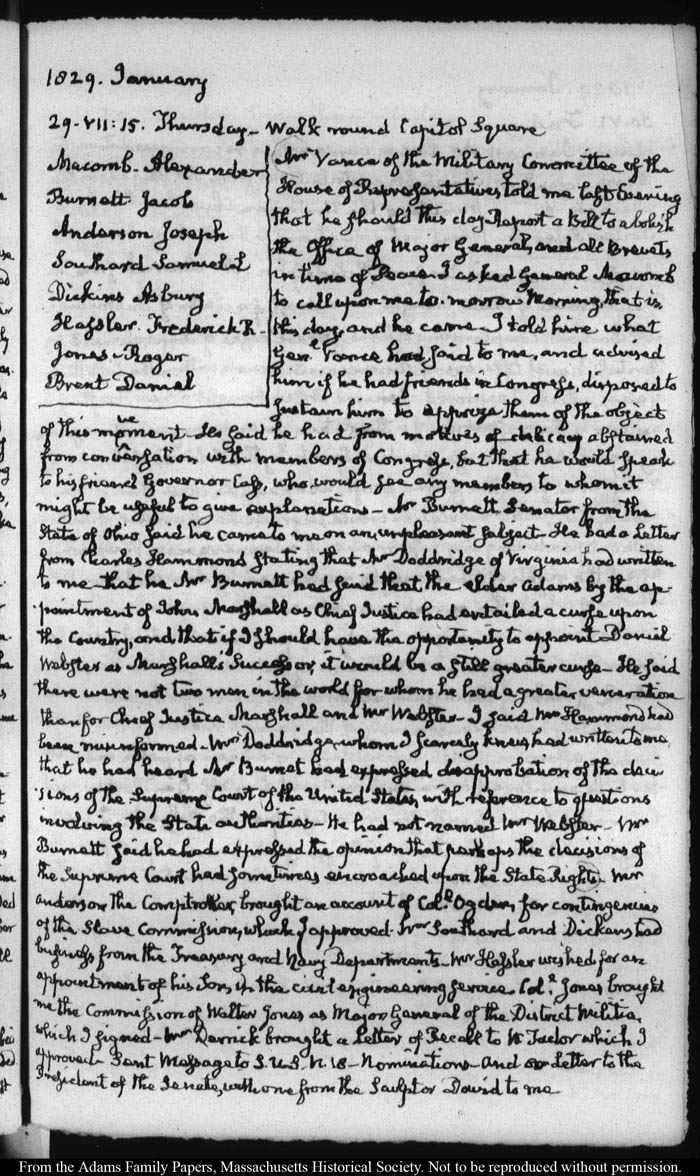 1829. January
29. VII:15. Thursday – Walk round Capitol Square
Macomb. Alexander
Burnett Jacob
Anderson Joseph
Southard Samuel L
Dickins Asbury
Hassler. Frederick R.
Jones. Roger
Brent Daniel
Mr Vance of the Military Committee of the
House of Representatives told me last Evening
that he should this day Report a Bill to abolish
the Office of Major General, and all Brevets,
in time of Peace. I asked General Macomb
to call upon me to-morrow Morning, that is,
this day, and he came. I told him what
Genl Vance had said to me, and advised
him if he had friends in Congress, disposed to
sustain him to apprize them of the object
of this movement – He said he had from motives of delicacy abstained
from conversation with members of Congress, but that he would speak
to his friend Governor Cass, who would see any members to whom it
might be useful to give explanations – Mr Burnett Senator from the
State of Ohio said he came to me on an unpleasant subject – He had a Letter
from Charles Hammond stating that Mr Doddridge of Virginia had written
to me that he Mr Burnett had said that the elder Adams by the ap-
pointment of John Marshall as Chief Justice had entailed a curse upon
the Country, and that if I should have the opportunity to appoint Daniel
Webster as Marshall's Successor, it would be a still greater curse – He said
there were not two men in the world for whom he had a greater veneration
than for Chief Justice Marshall and Mr Webster – I said Mr Hammond had
been misinformed – Mr Doddridge, whom I scarcely knew had written to me,
that he had heard Mr Burnet had expressed disapprobation of the deci
sions of the Supreme Court of the United States, with reference to questions
involving the State authorities – He had not named Mr Webster – Mr
Burnett said he had expressed the opinion that perhaps the decisions of
the Supreme Court had sometimes encroached upon the State Rights – Mr
Anderson the Comptroller, brought an account of Coll Ogden, for contingencies
of the Slave Commission, which I approved. Mr Southard and Dickens had
business from the Treasury and Navy Departments – Mr Hassler wished for an
appointment of his Son, in the civil engineering service. Coll Jones brought
me the Commission of Walter Jones as Major General of the District Militia,
which I signed – Mr Derrick brought a Letter of Recall to W. Tudor which I
approved – Sent Message to S.U.S. N. 18 – Nominations – and Letter to the
President of the Senate, with one from the Sculptor David to me
From the Adams Family Papers, Massachusetts Historical Society. Not to be reproduced without permission.